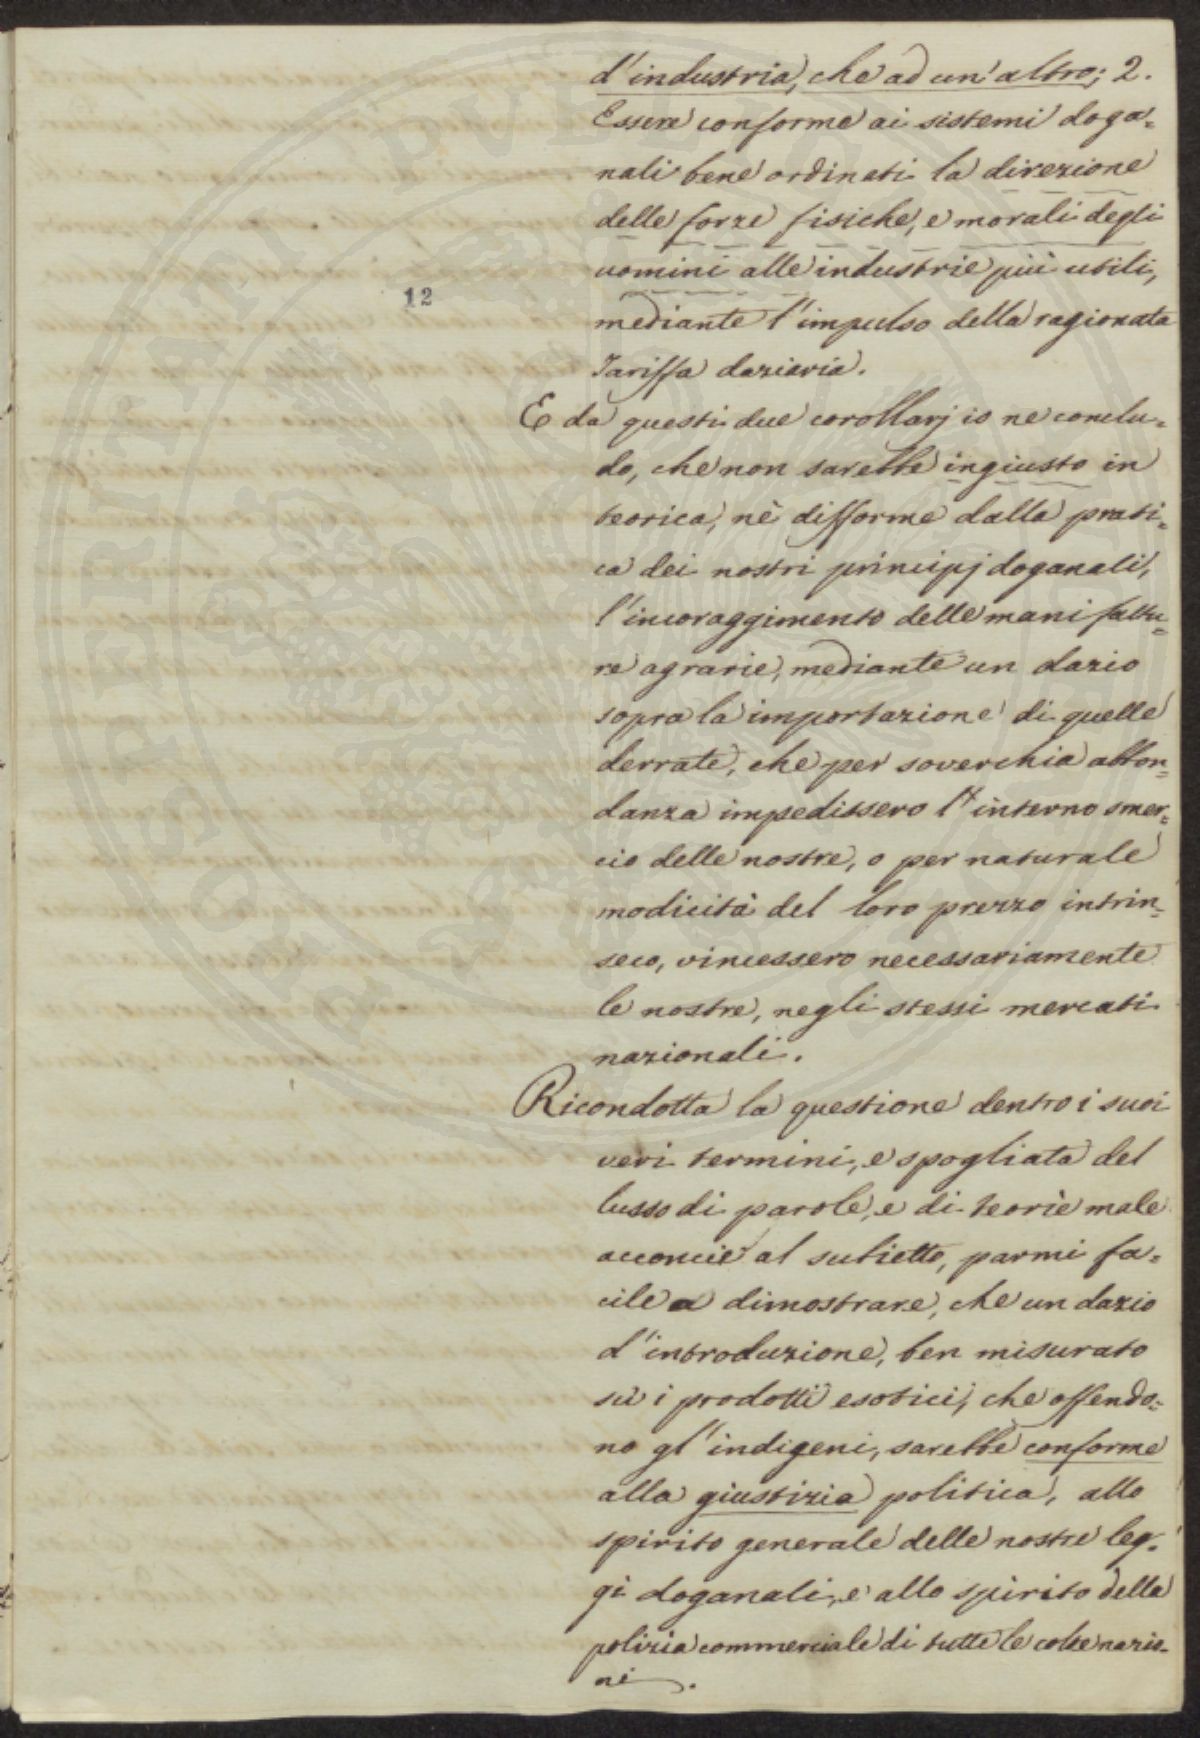 d'industria, che ad un'altro; 2.
Essere conforme ai sistemi doga=
nali bene ordinati la direzione
delle forze fisiche, e morali degli
uomini alle industrie più utili,
12
mediante l'impulso della ragionata
Tariffa daziaria.
E da questi due corollarj io ne conclu=
do, che non sarebbe ingiusto in
teorica, nè difforme dalla prati=
ca dei nostri principj doganali,
l'incoraggimento delle manifattu=
re agrarie, mediante un dazio
sopra la importazione di quelle
derrate, che per soverchia abbon=
danza impedissero l'interno smer=
cio delle nostre, o per naturale
modicità del loro prezzo intrin=
seco, vincessero necessariamente
le nostre, negli stessi mercati
nazionali.
Ricondotta la questione dentro i suoi
veri termini, e spogliata del
lusso di parole, e di teorie male
acconcie al subietto, parmi fa=
cile a dimostrare, che un dazio
d'introduzione, ben misurato
sù i prodotti esotici, che offendo=
no gl'indigeni, sarebbe conforme
alla giustizia politica, allo
spirito generale delle nostre leg=
gi doganali, e allo spirito della
polizia commerciale di tutte le colte nazio=
ni.